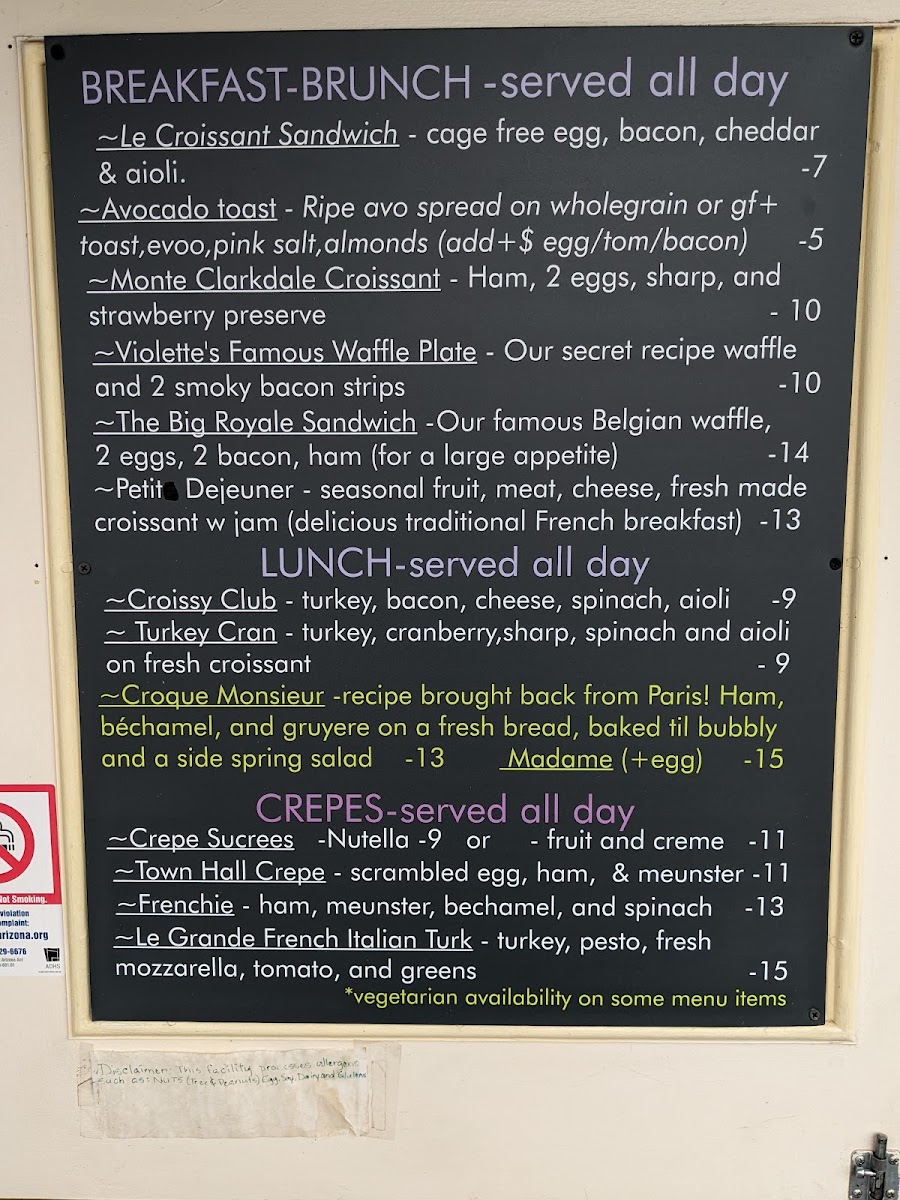 BREAKFAST-BRUNCH -served all day
~Le Croissant Sandwich - cage free egg, bacon, cheddar
& aioli. -7
~Avocado toast - Ripe avo spread on wholegrain or gf+
toast,evoo,pink salt,almonds (add+$ egg/tom/bacon) -5
~Monte Clarkdale Croissant - Ham, 2 eggs, sharp, and
strawberry preserve - 10
~Violette's Famous Waffle Plate - Our secret recipe waffle
and 2 smoky bacon strips -10
~The Big Royale Sandwich -Our famous Belgian waffle,
2 eggs, 2 bacon, ham (for a large appetite) -14
~Petit Dejeuner - seasonal fruit, meat, cheese, fresh made
croissant w jam (delicious traditional French breakfast) -13
LUNCH-served all day
~Croissy Club - turkey, bacon, cheese, spinach, aioli -9
~ Turkey Cran - turkey, cranberry,sharp, spinach and aioli
on fresh croissant - 9
~Croque Monsieur -recipe brought back from Paris! Ham,
béchamel, and gruyere on a fresh bread, baked til bubbly
and a side spring salad -13 Madame (+egg) -15
CREPES-served all day
~Crepe Sucrees -Nutella -9 or - fruit and creme -11
~Town Hall Crepe - scrambled egg, ham, & meunster -11
~Frenchie - ham, meunster, bechamel, and spinach -13
~Le Grande French Italian Turk - turkey, pesto, fresh
mozzarella, tomato, and greens -15
*vegetarian availability on some menu items
Not Smoking.
violation
mplaint:
rizona.org
29-6676
ADHS
Disclaimer: This facility processes allergens
such as: NUTS (Tree & Peanuts) Egg, Soy, Dairy and Glutens